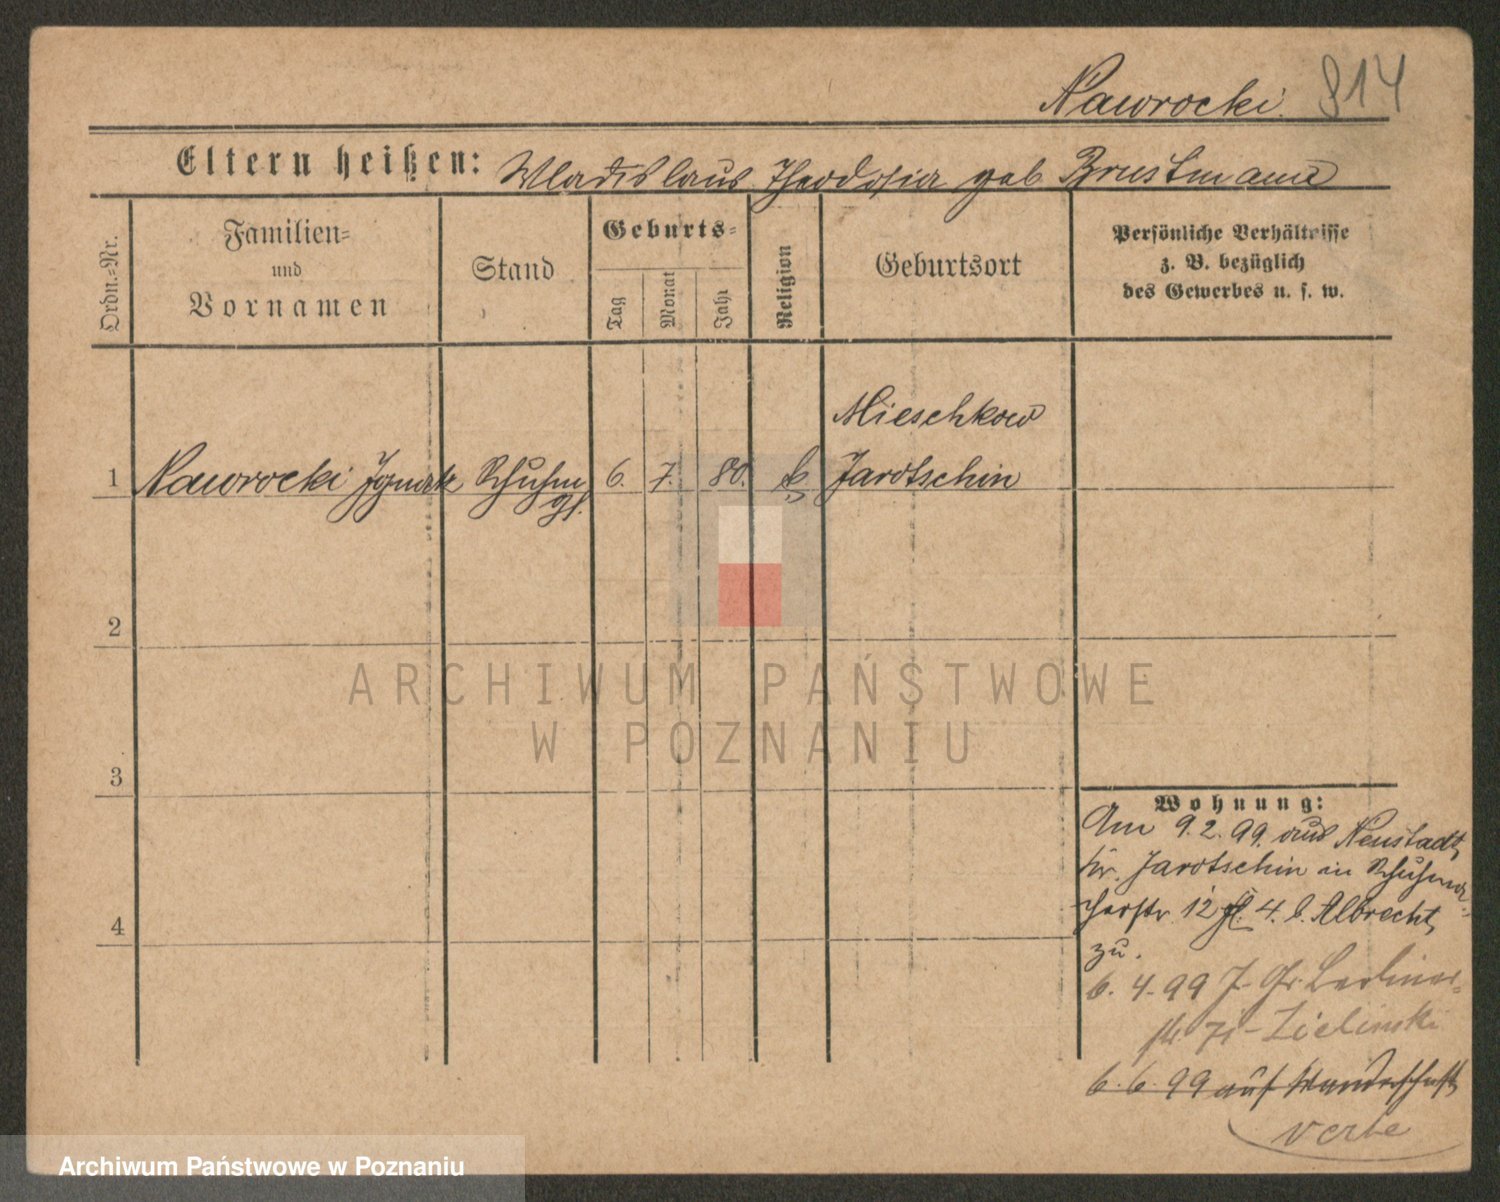 Nawrocki. 814
Eltern heißen: Wladislaus Theodosia geb Brustmann
Ordn.=Nr.
Familien=
und
Vornamen
Stand
Geburts=
Tag
Monat
Jahr
Religion
Geburtsort
Persönliche Verhältnisse
z. B. bezüglich
des Gewerbes u. s. w.
Mieschkow
1 Nawrocki Ignatz Schuhm 6. 7. 80. k Jarotschin
gs.
2
3
4
Wohnung:
Am 9.2.99. aus Neustadt,
Kr. Jarotschin in Schuhma=
cherstr 12 4. b. Albrecht,
zu.
6. 4. 99 J. Gr. Berliner=
str. Zielinski
6. 6. 99 auf Wanderschaft
ARCHIWUM PAŃSTWOWE
W POZNANIU
Archiwum Państwowe w Poznaniu